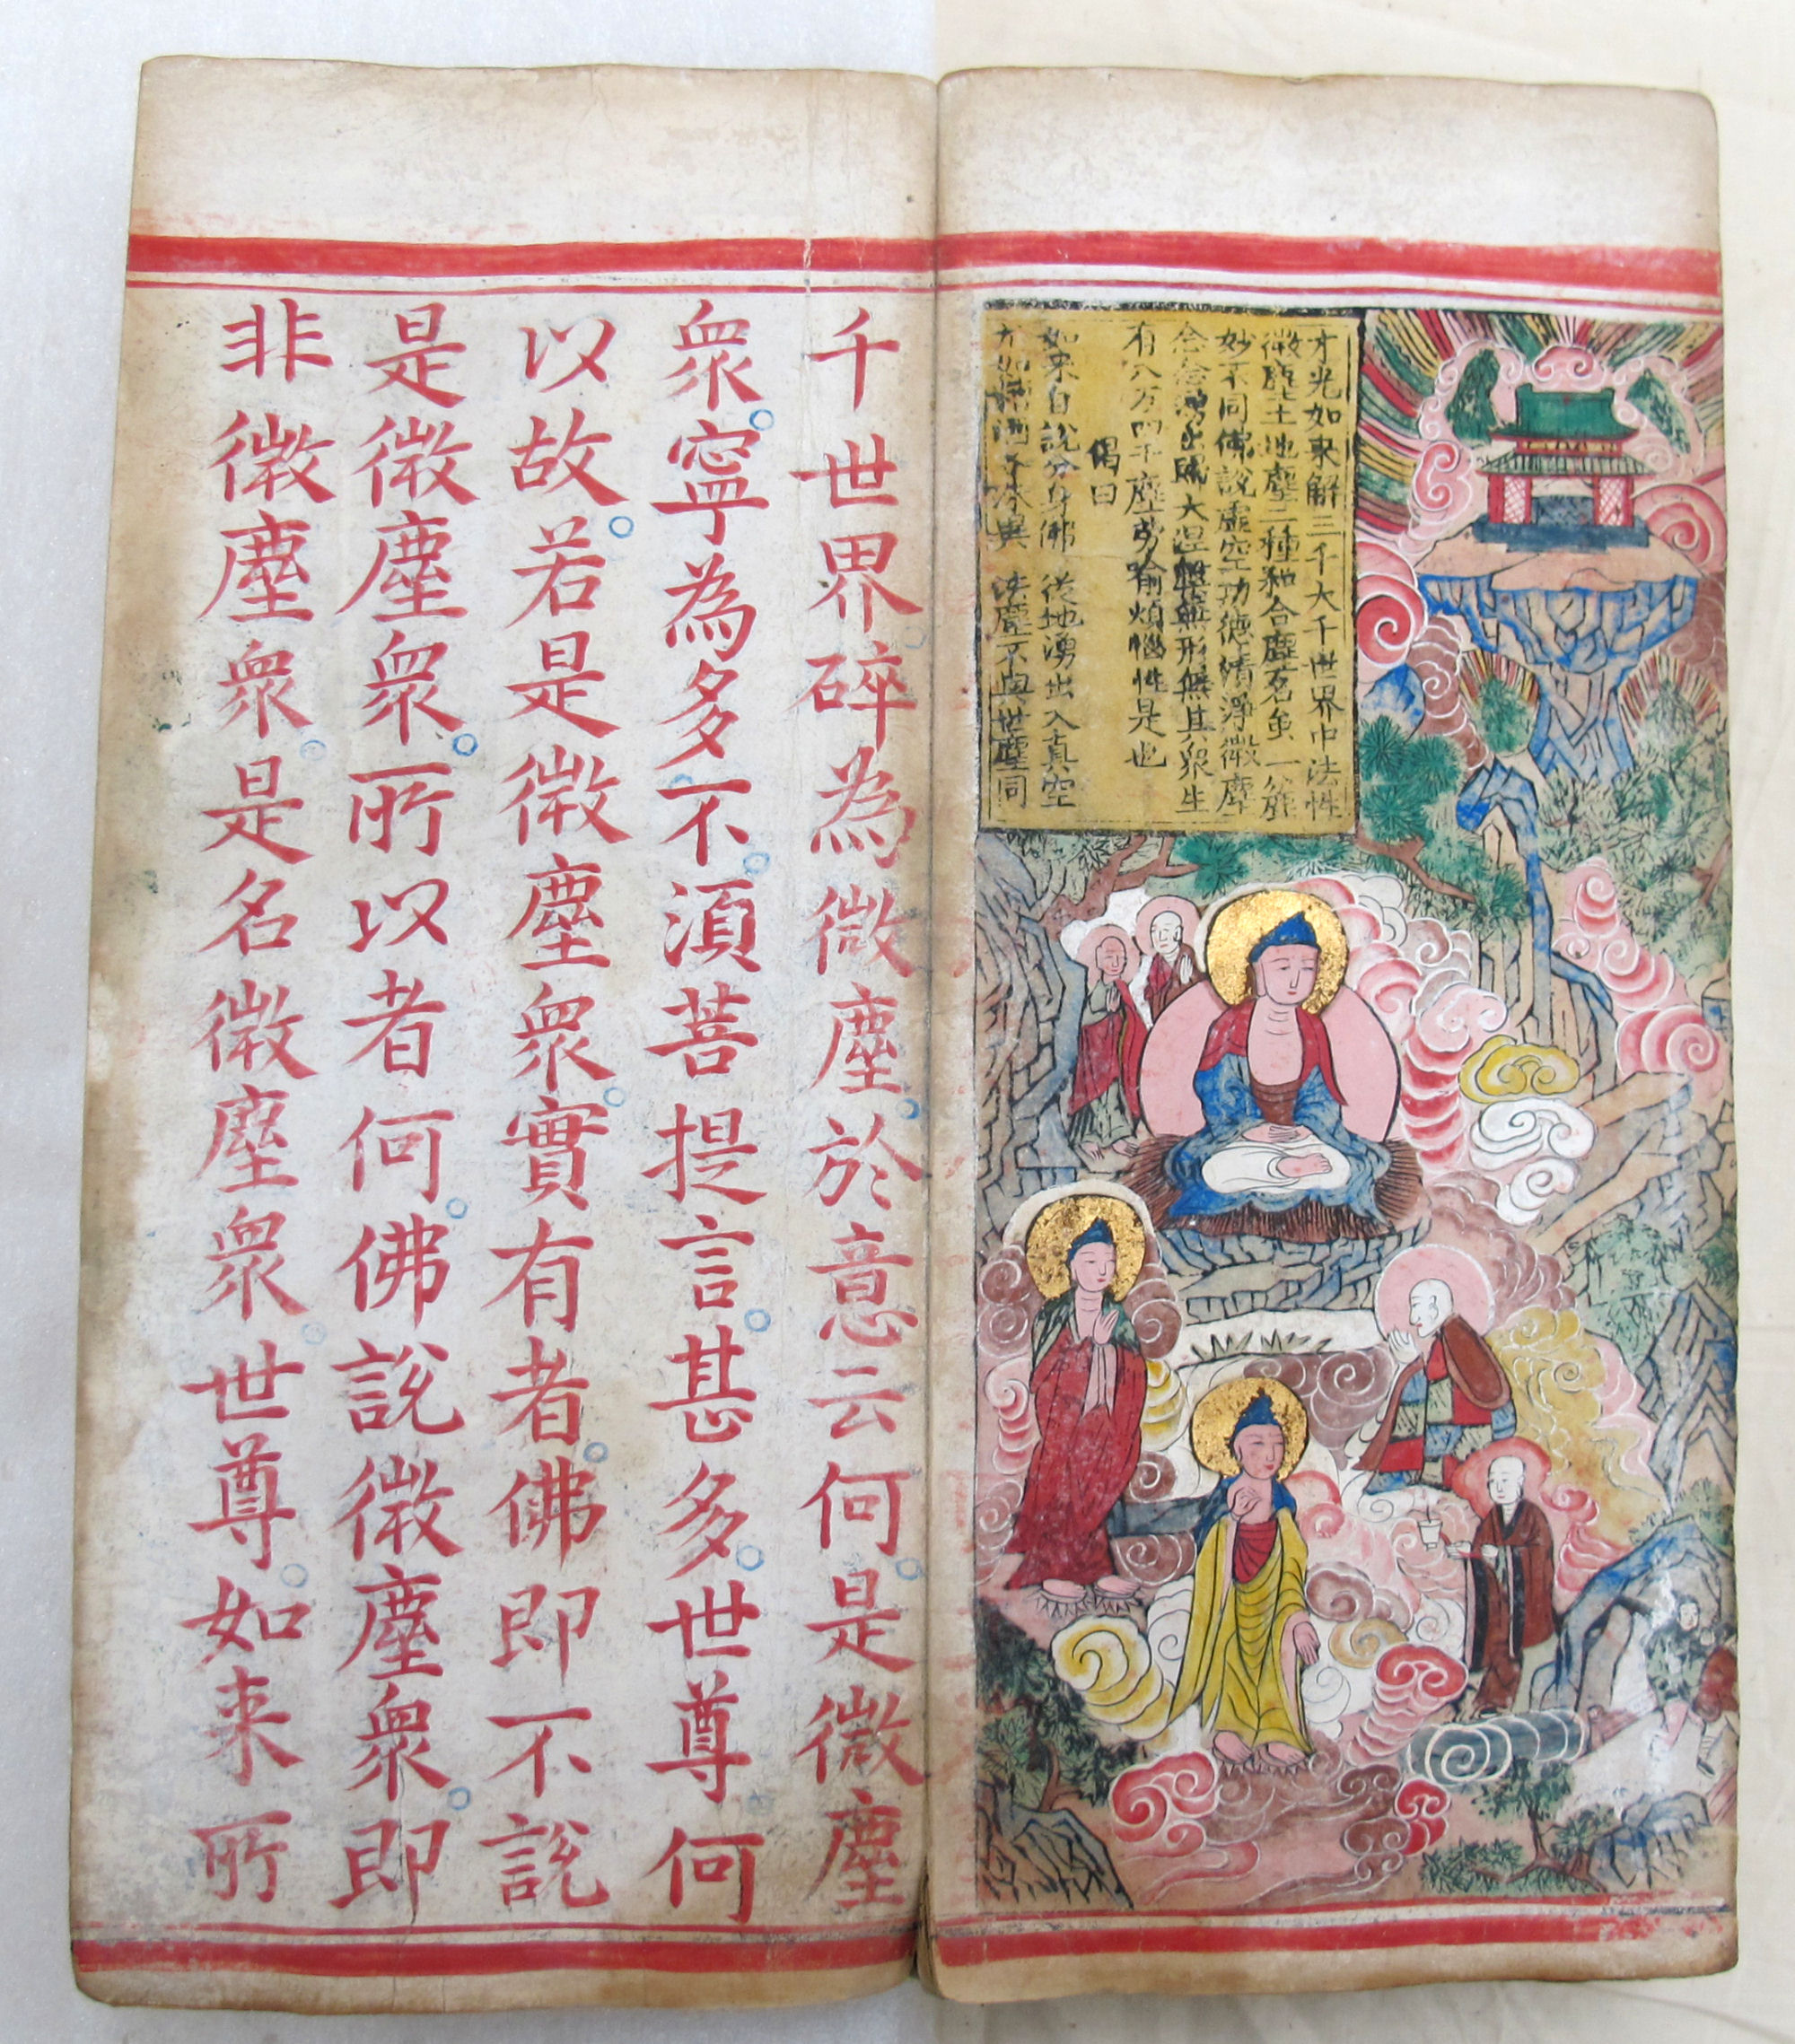 才光如來解三千大千世界中法性
微塵土地塵二種和合塵名虽一分能
妙不同佛說虛空功德清淨微塵
念念湧出大涅槃無形無其衆生
有八万四千塵勞喻煩惱性是也
偈曰
如来自說分身佛 從地湧出入真空
法塵不與世塵同
千世界碎為微塵於意云何是微塵
衆寧為多不須菩提言甚多世尊何
以故若是微塵衆實有者佛即不說
是微塵衆所以者何佛說微塵衆即
非微塵衆是名微塵衆世尊如来所